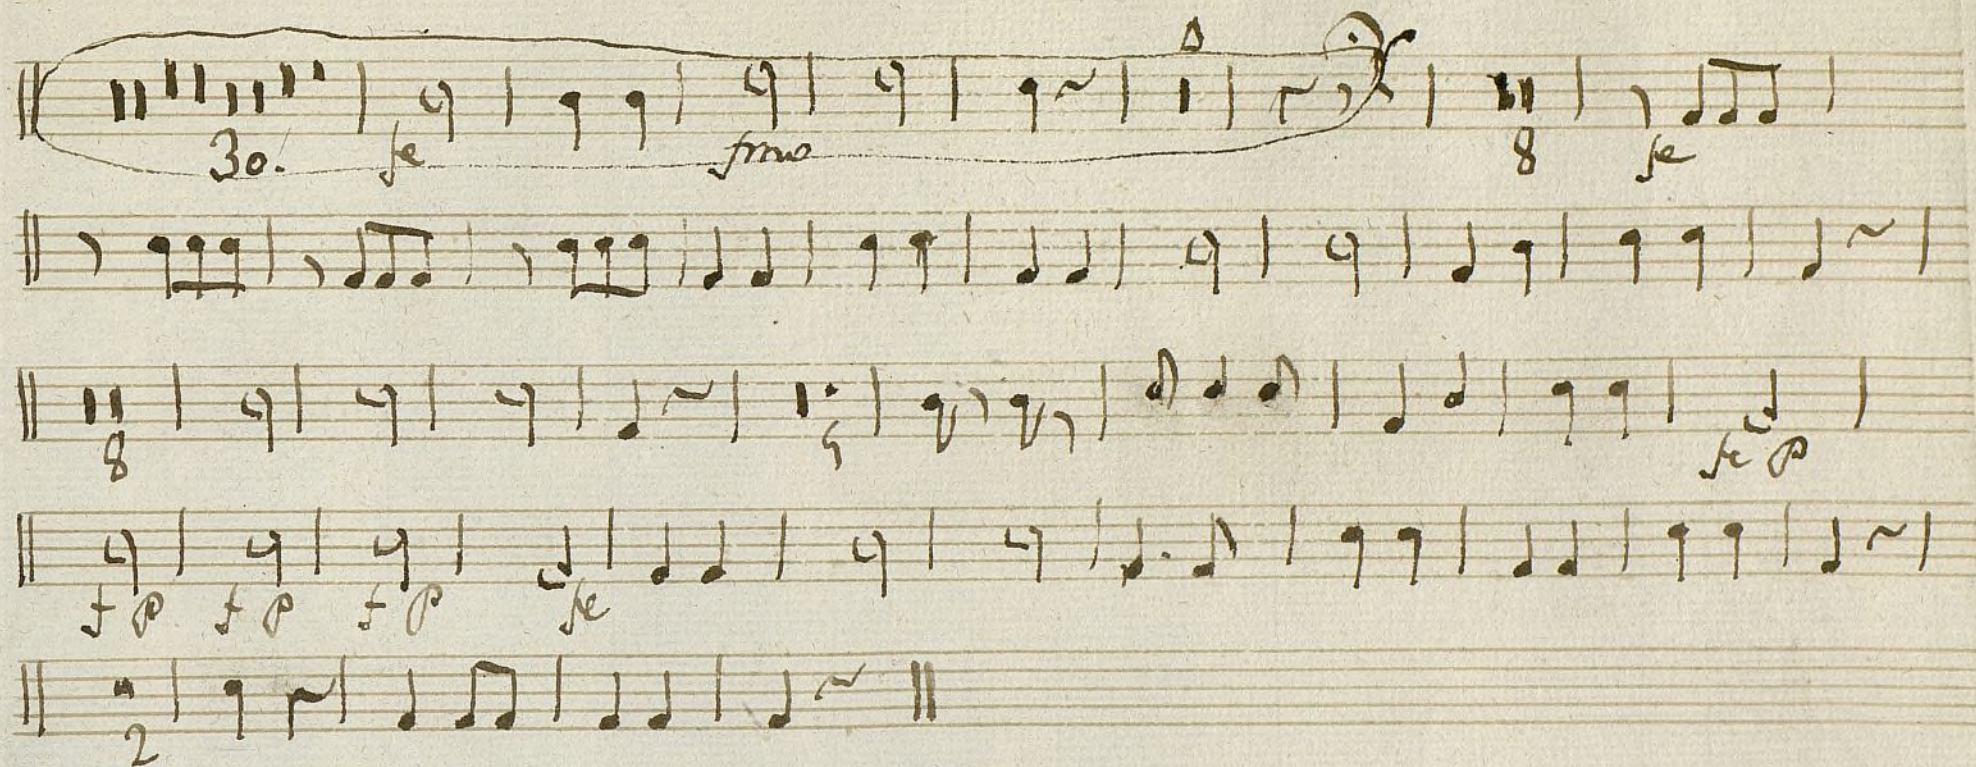 30. fe fmo 8 fe
8 5 fe p
f p f p f p fe
2